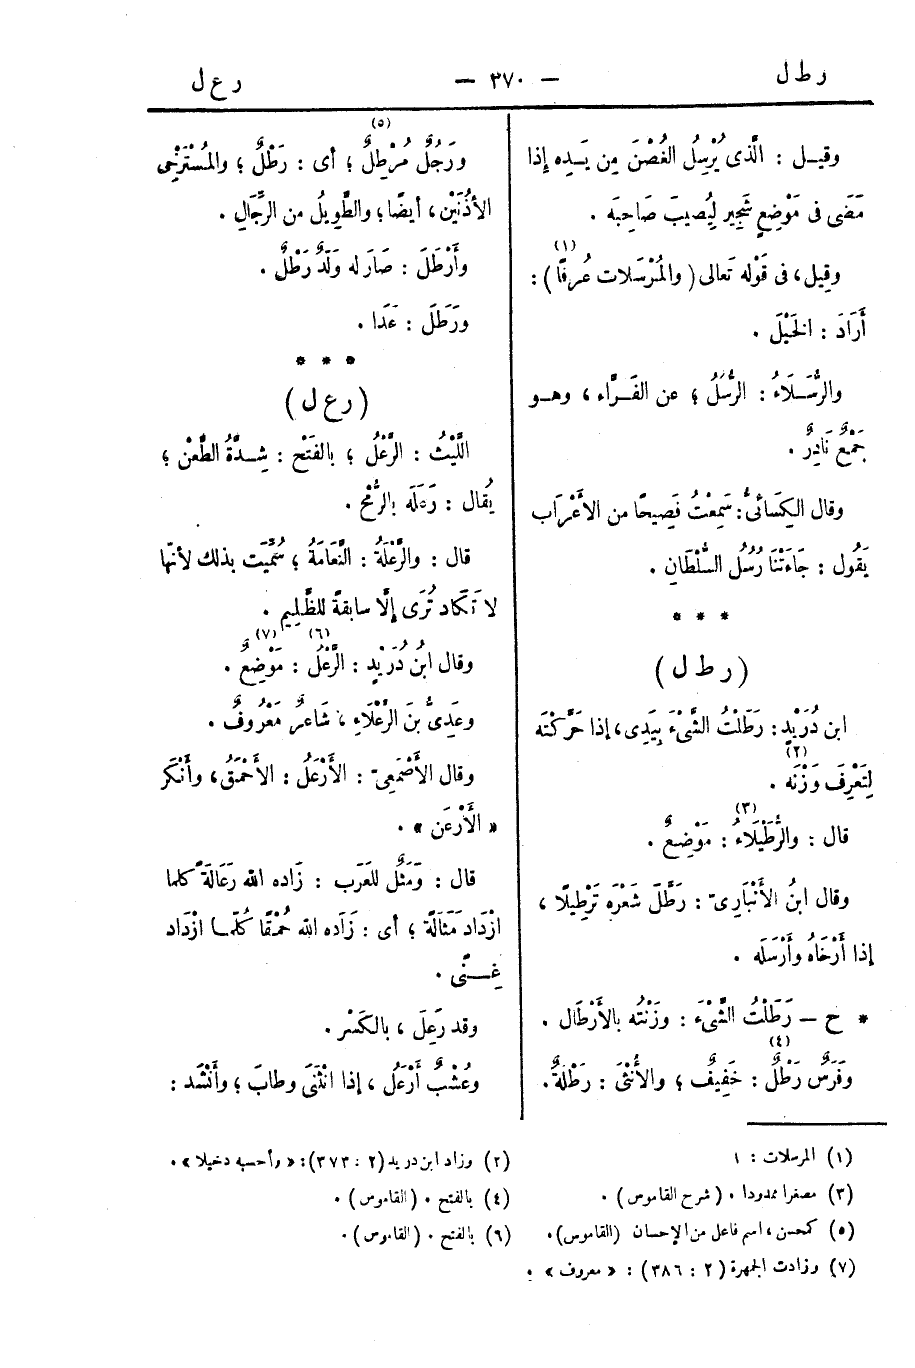 رطل
— ٣٧٠ —
رعل
وقيـل : الَّذى يُرْسِلُ الغُصْنَ مِن يَـدِه إذا
مَضَى فى مَوْضِعٍ شَجِيرٍ لِيُصيبَ صَاحِبَه .
وقِيل ، فى قَوْله تَعالى ( والمُرْسَلات عُرفًا ) (١) :
أَرَادَ : الخَيْلَ .
والرُّسَـلَاءُ : الرُّسُلُ ؛ عن الفَـرّاء ، وهـو
جَمْعٌ نَادِرٌ .
وقال الكِسَائىُّ : سَمِعْتُ فَصِيحًا من الأَعْرَاب
يَقُول : جَاءَتْنَا رُسُلُ السُّلْطَانِ .
* * *
( رطل )
ابن دُرَيْدٍ : رَطَلْتُ الشَّىْءَ بِيَدِى ، إذا حَرَّكْتَه
لِتَعْرِفَ وَزْنَه (٢) .
قال : والرُّطَيْلَاءُ (٣) : مَوْضِعٌ .
وقال ابنُ الأَنْبَارِىّ : رَطَّلَ شَعْرَه تَرْطِيلًا ،
إذا أَرْخَاهُ وأَرْسَلَه .
* ح — رَطَلْتُ الشَّىْءَ : وزَنْتُه بالأَرْطَال .
وفَرَسٌ رَطْلٌ (٤) : خَفِيفٌ ؛ والأُنْثَى : رَطْلةٌ .
ورَجُلٌ مُرْطِلٌ (٥) ؛ أى : رَطْلٌ ؛ والمُسْتَرْخِى
الأُذُنَيْنِ ، أيضًا ؛ والطَّوِيلُ من الرِّجَالِ .
وأَرْطَلَ : صَارَ له وَلَدٌ رَطْلٌ .
ورَطَلَ : عَدَا .
* * *
( رعل )
اللَّيْثُ : الرَّعْلُ ؛ بالفَتْح : شِـدَّةُ الطَّعْنِ ؛
يُقال : رَعَلَه بالرُّمْحِ .
قال : والرَّعْلَةُ : النَّعَامَةُ ؛ سُمِّيَت بذلك لأنّها
لا تَكاد تُرَى إلَّا سابقةً للظَّلِيمِ .
وقال ابنُ دُرَيْدٍ : الرَّعْلُ (٦) : مَوْضِعٌ (٧) .
وعَدِىُّ بنَ الرَّعْلَاءِ ، شَاعرٌ مَعْرُوفٌ .
وقال الأَصْمَعِىّ : الأَرْعَلُ : الأَحْمَقُ ، وأَنْكَر
« الأَرْعَن » .
قال : ومَثَلٌ للعَرَب : زَاده الله رَعَالَةً كلما
ازْدَاد مَثَالَةً ؛ أى : زَاَده الله حُمْقًا كُلّمـا ازْدَاد
غِـنًى .
وقد رَعِلَ ، بالكَسْر .
وعُشْبٌ أَرْعَلُ ، إذا انْثَنَى وطابَ ؛ وأَنْشَد :
(١) المرسلات : ١
(٢) وزاد ابن دريد (٢ : ٣٧٣) : « وأحسبه دخيلا » .
(٣) مصغرا ممدودا . ( شرح القاموس ) .
(٤) بالفتح . ( القاموس ) .
(٥) كمحسن ، اسم فاعل من الإحسان (القاموس) .
(٦) بالفتح . ( القاموس ) .
(٧) وزادت الجمهرة (٢ : ٣٨٦) : « معروف » .